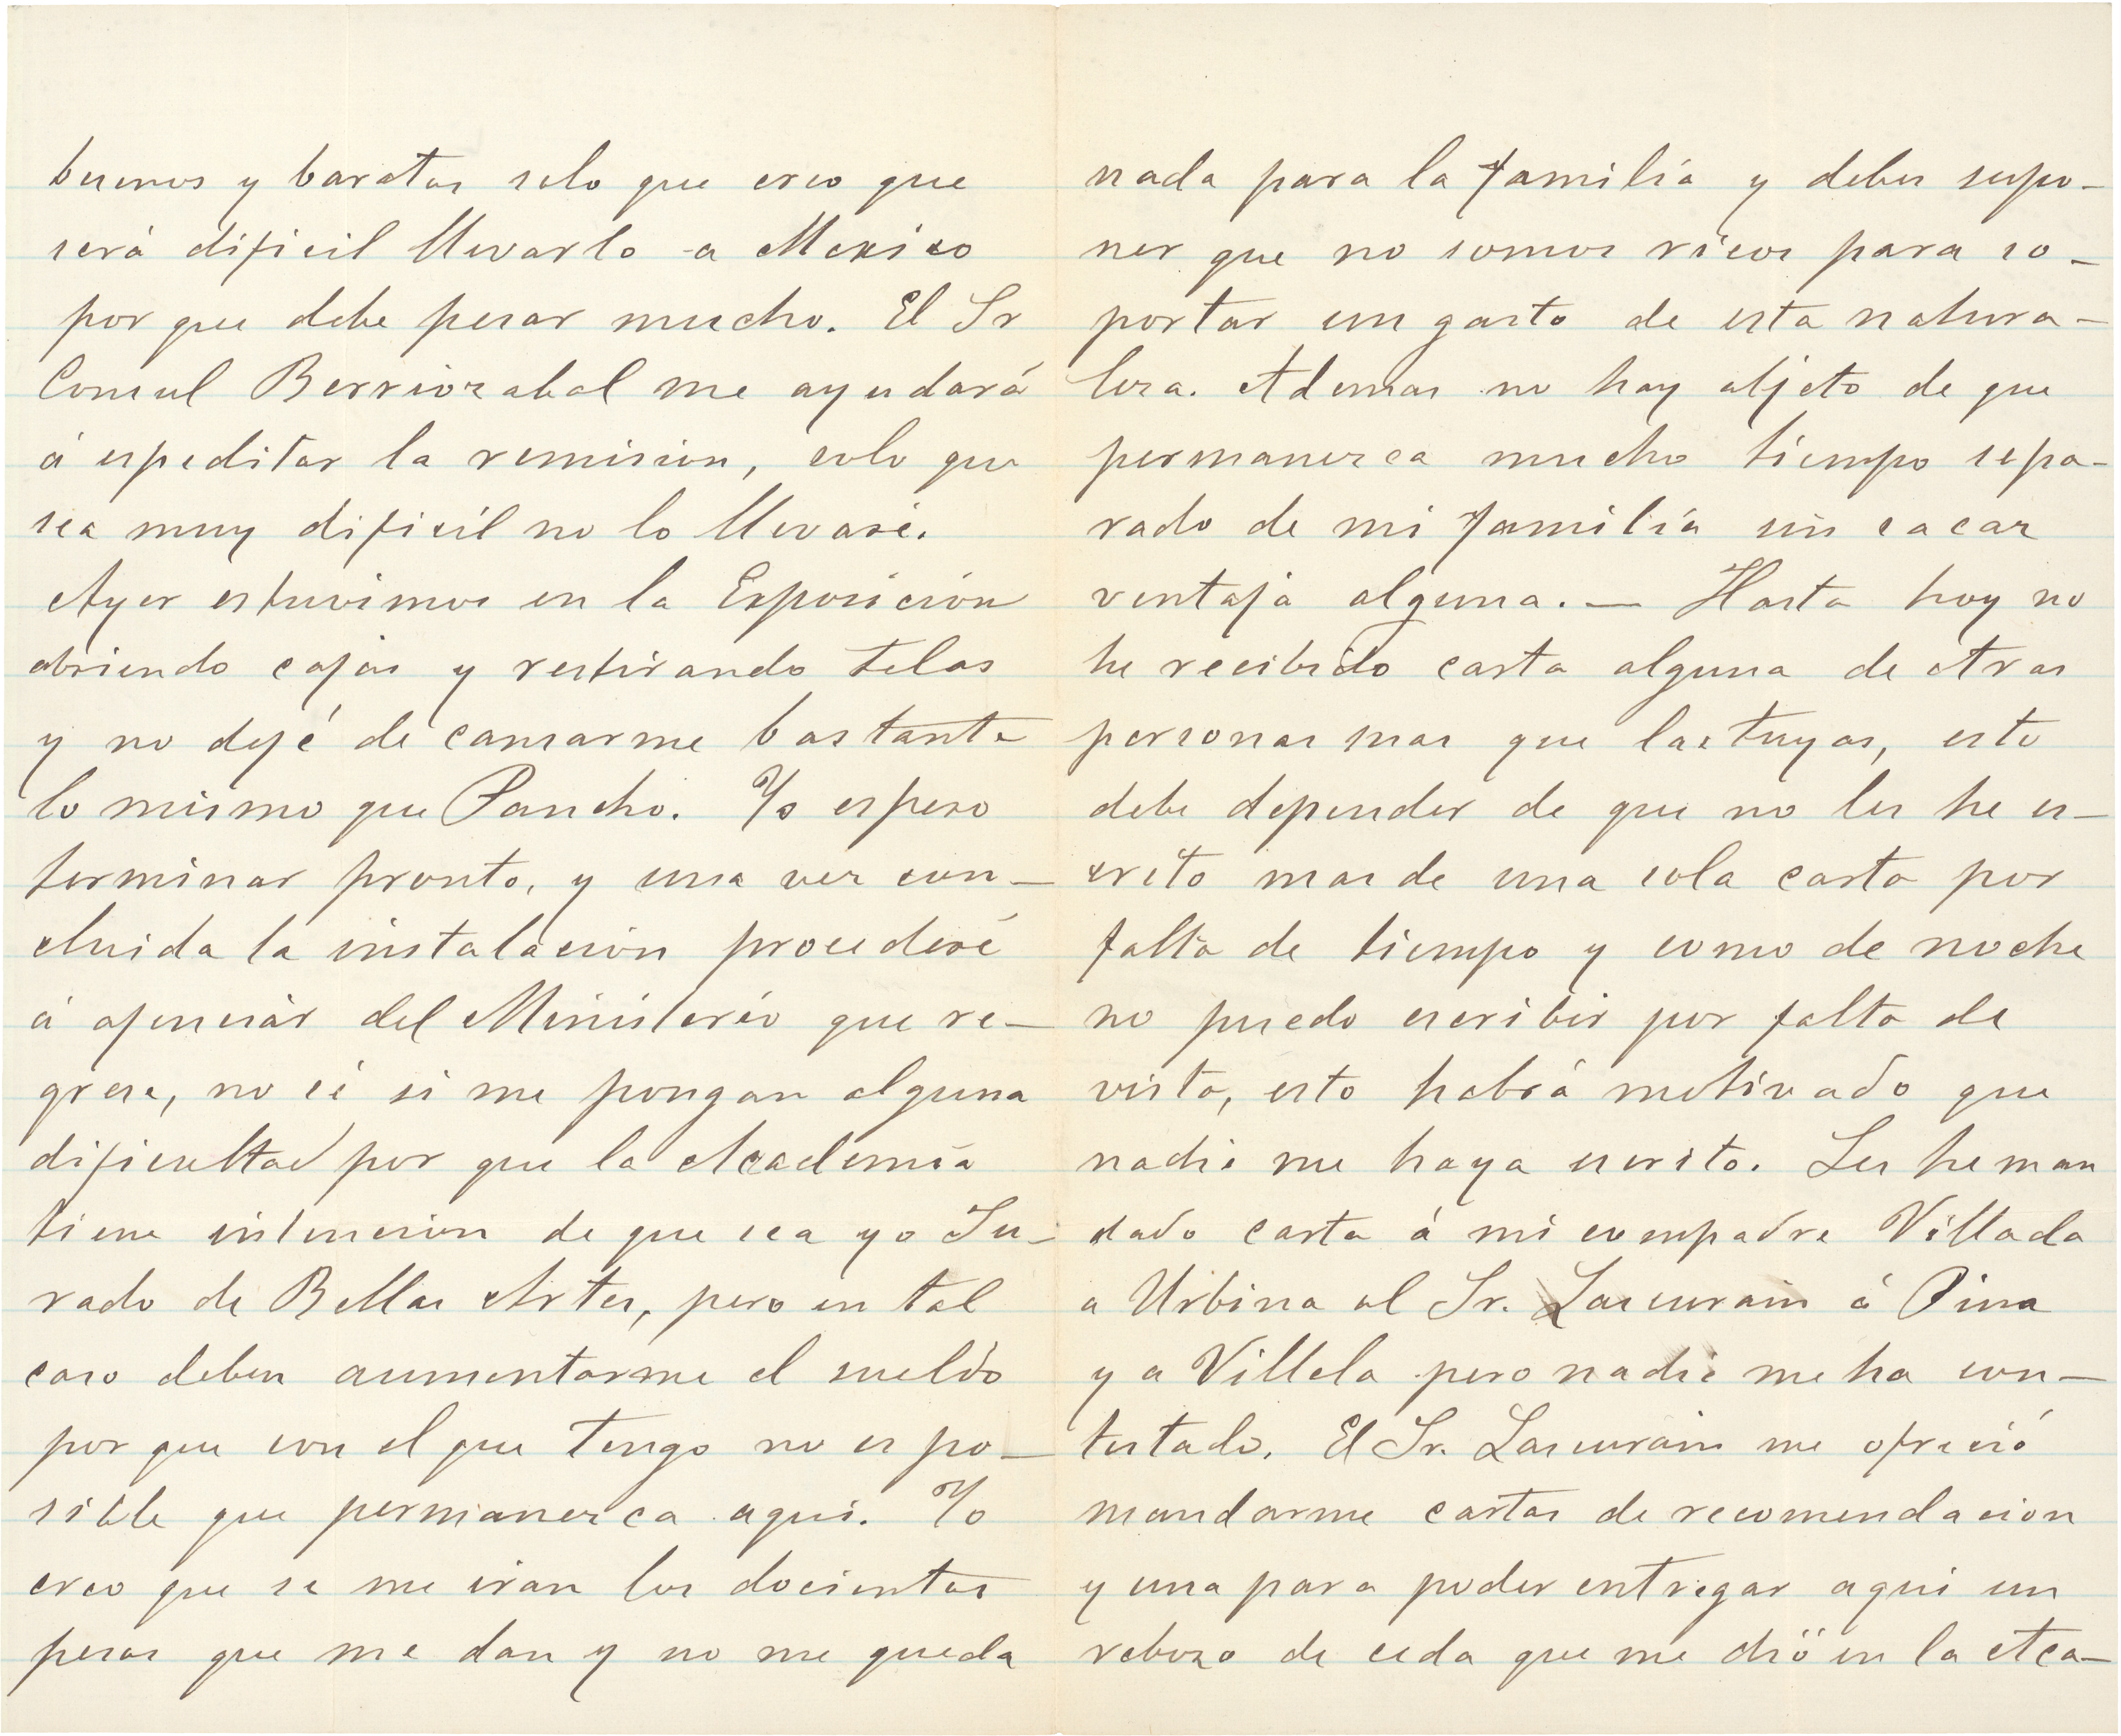 buenos y baratos solo que creo que
será dificil llevarlo a Mexico
por que debe pesar mucho. El Sr
Consul Berriozabal me ayudará
á espeditar la remision, solo que
sea muy dificil no lo llevaré.
Ayer estuvimos en la Exposición
abriendo cajas y restirando telas
y no dejé de cansarme bastante
lo mismo que Pancho. Yo espero
terminar pronto, y una vez con-
cluida la instalación procederé
á ajenciar del Ministerio que re-
grese, no sé si me pongan alguna
dificultad por que la Academia
tiene intencion de que sea yo Ju-
rado de Bellas Artes, pero en tal
caso deben aumentarme el sueldo
por que con el que tengo no es po-
sible que permanezca aqui. Yo
creo que se me iran los docientos
pesos que me dan y no me queda
nada para la familia y debes supo-
ner que no somos ricos para so-
portar un gasto de esta natura-
leza. Ademas no hay objeto de que
permanezca mucho tiempo sepa-
rado de mi familia sin cacar
ventaja alguna. — Hasta hoy no
he recibido carta alguna de otras
personas mas que las tuyas, esto
debe depender de que no les he es-
crito mas de una sola carta por
falta de tiempo y como de noche
no puedo escribir por falta de
vista, esto habrá motivado que
nadie me haya escrito. Les he man
dado carta á mi compadre Villada
a Urbina al Sr. Lascurain á Pina
y a Villela pero nadie me ha con-
testado. El Sr. Lascurain me ofreció
mandarme cartas de recomendacion
y una para poder entregar aqui un
rebozo de seda que me dió en la Aca-